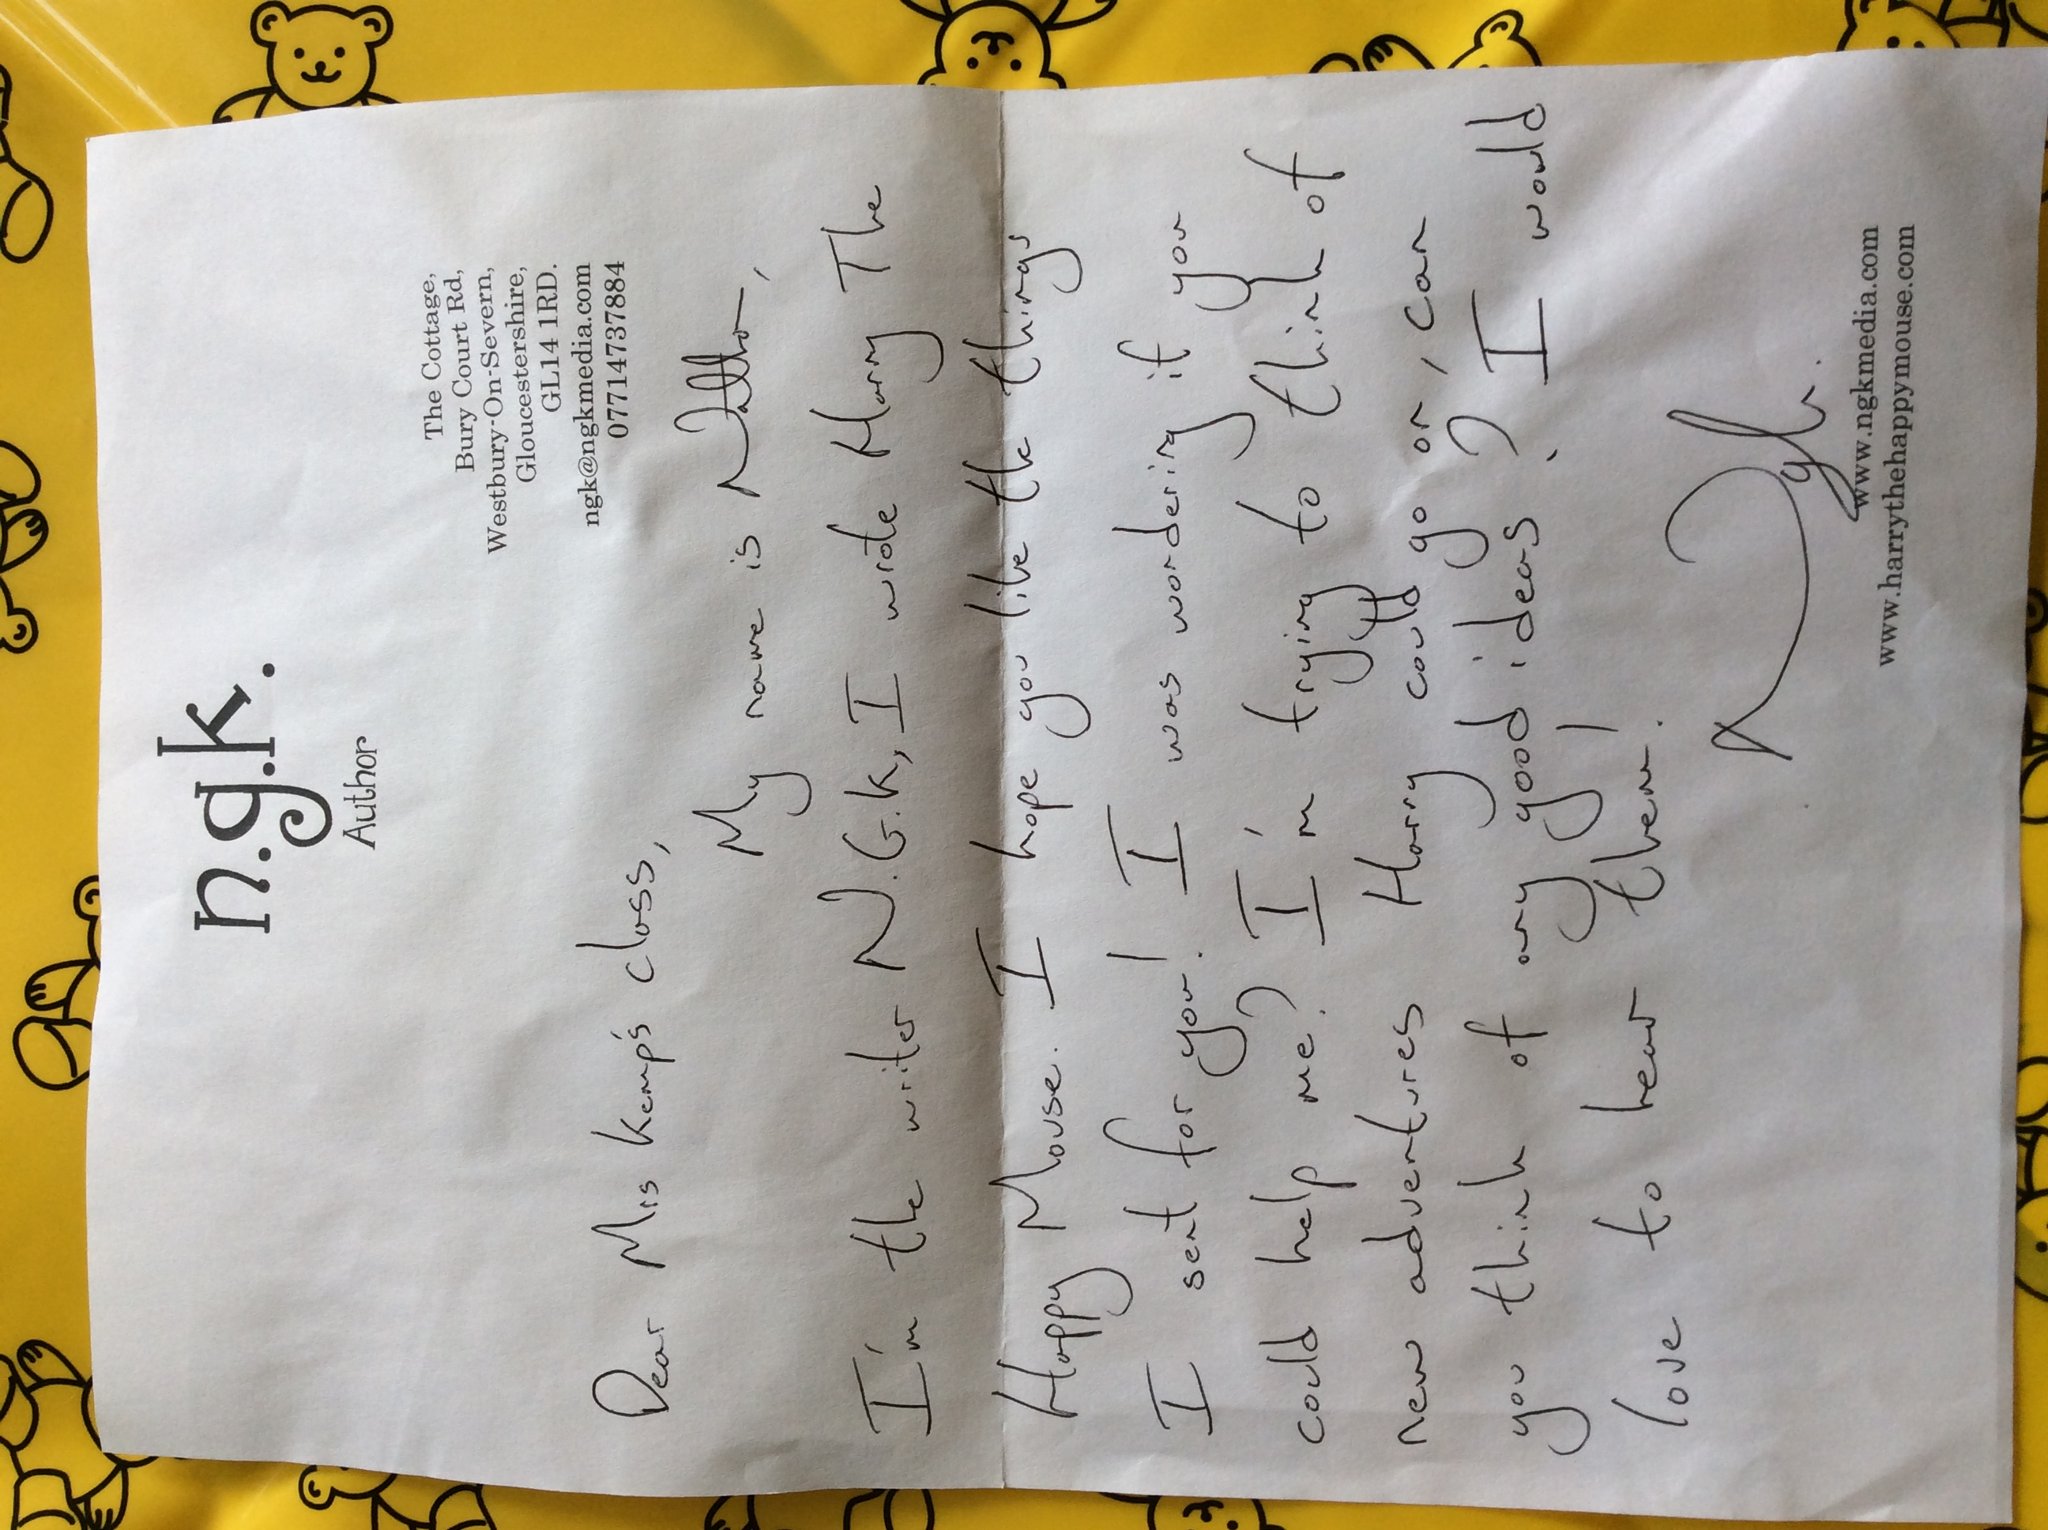 n.g.k.
Author
The Cottage,
Bury Court Rd,
Westbury-On-Severn,
Gloucestershire,
GL14 1RD.
ngk@ngkmedia.com
07714737884
Dear Miss Kemp's class,
My name is Nathan,
I'm the writer N.G.K, I wrote Harry The
Happy Mouse. I hope you like the things
I sent for you! I was wondering if you
could help me? I'm trying to think of
new adventures Harry could go on, can
you think of any good ideas? I would
love to hear them!
Ngk.
www.ngkmedia.com
www.harrythehappymouse.com